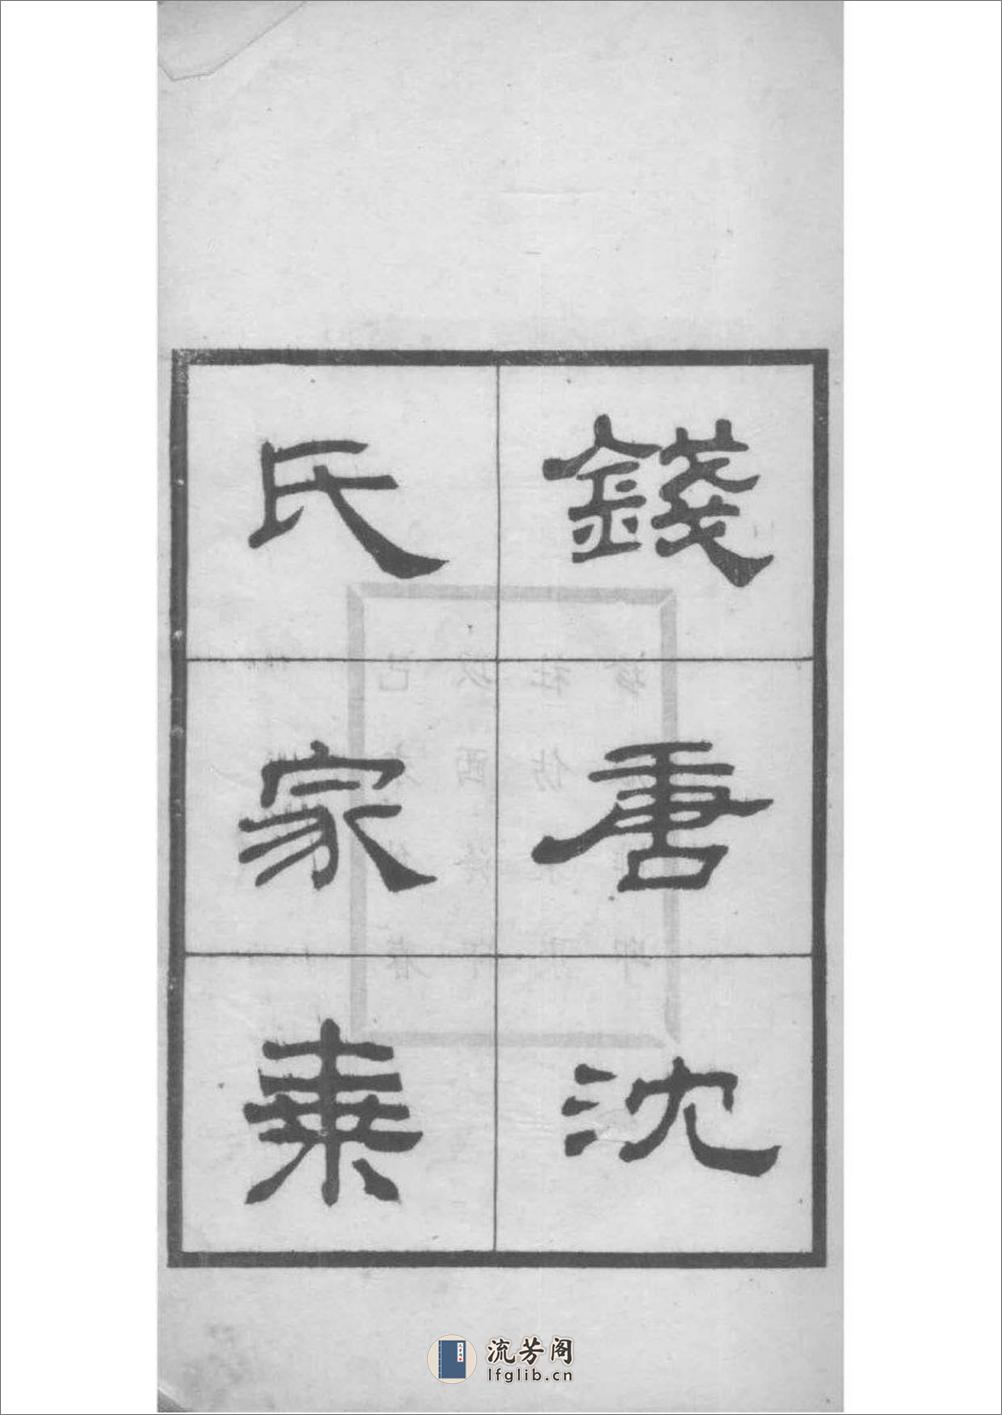 錢唐沈
氏家乘
流芳阁
lfglib.cn